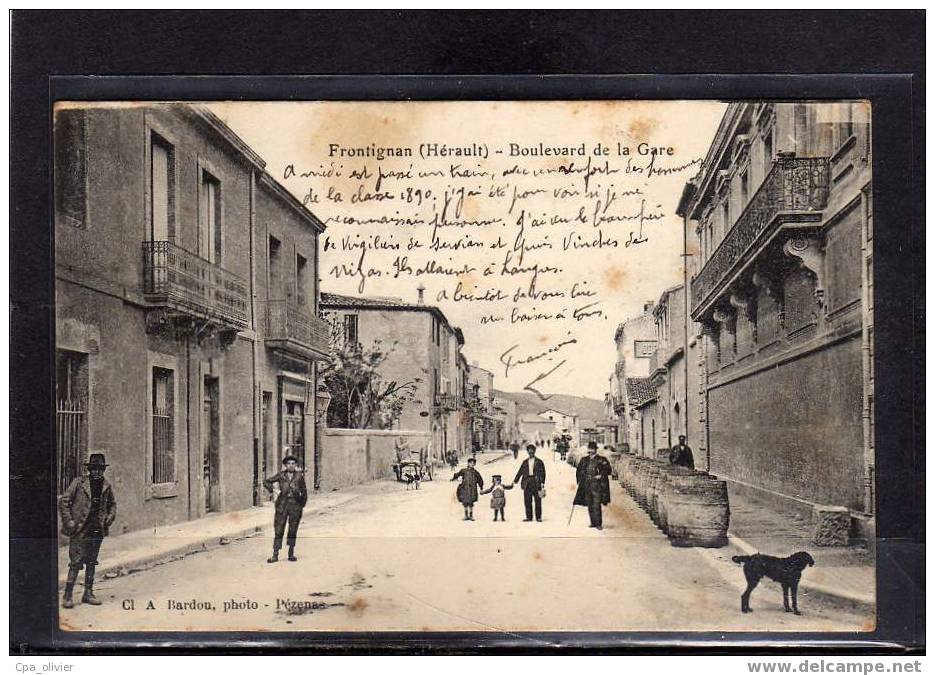 Frontignan (Hérault) - Boulevard de la Gare
A midi est passé un train, avec un renfort des hommes
de la classe 1890. j'ai été pour voir si je ne
reconnaissais personne. J'ai vu le beau père
de Virgilius de Servian et puis Vinches des
Nizas. Ils allaient à
A bientôt de vous lire
un baiser à tous.
François
Cl A Bardou, photo - Pézenas
Cpa_olivier
http://www.delcampe.net